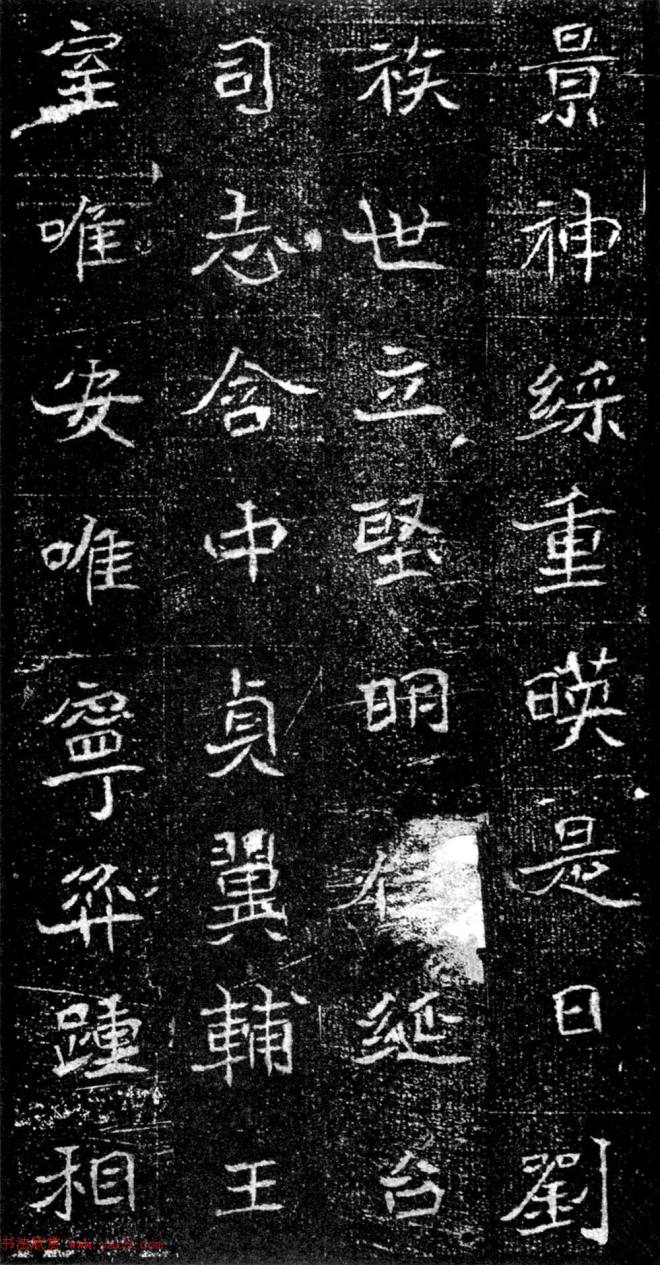 景神綵重暎是日劉
族世立堅明綖台
司志含中貞翼輔王
室唯安唯寧弈踵相
书法欣赏 www.yac8.com